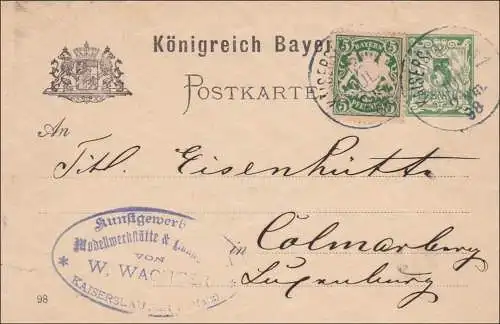 Königreich Bayer
POSTKARTE
5 BAYERN 5
5 PFENNIG 5
KAISERS
98
An
Titl. Eisenhütte
in Colmarberg
Luxenburg
Kunstgewerb
Modellwerkstätte &
VON
W. WAG
KAISERSLAU
98